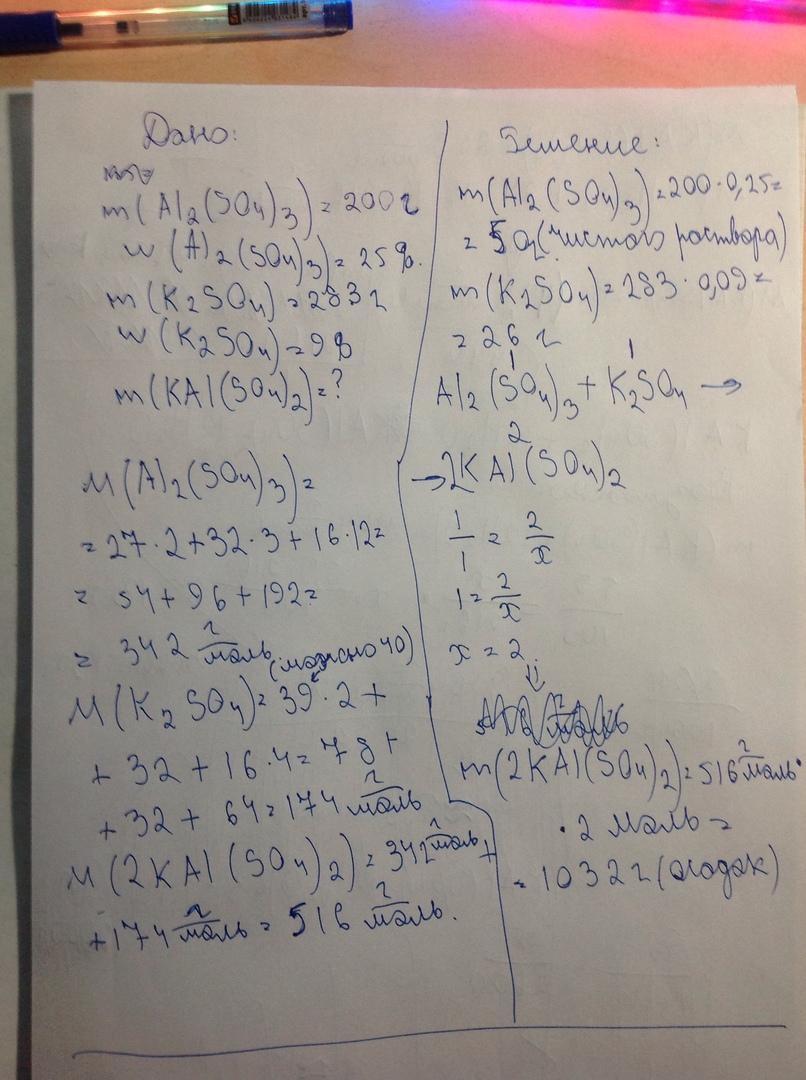 Дано:
m(Al₂(SO₄)₃)=200г
w(Al₂(SO₄)₃)=25%.
m(K₂SO₄)=283г
w(K₂SO₄)=9%
m(KAl(SO₄)₂)=?
M(Al₂(SO₄)₃)=
=27·2+32·3+16·12=
= 54+96+192=
= 342 г/моль
(можно 40)
M(K₂SO₄)=39·2+
+32+16·4=78+
+32+64=174 г/моль
M(2KAl(SO₄)₂)=342 г/моль+
+174 г/моль = 516 г/моль.
Решение:
m(Al₂(SO₄)₃)=200·0,25=
= 50г(чистого роствора)
m(K₂SO₄)=283·0,09=
= 26 г
1 1
Al₂(SO₄)₃+K₂SO₄→
2
→2KAl(SO₄)₂
1/1 = 2/x
1=2/x
x=2.
⇓
m(2KAl(SO₄)₂)=516 г/моль·
·2 моль=
=1032г(осадок)